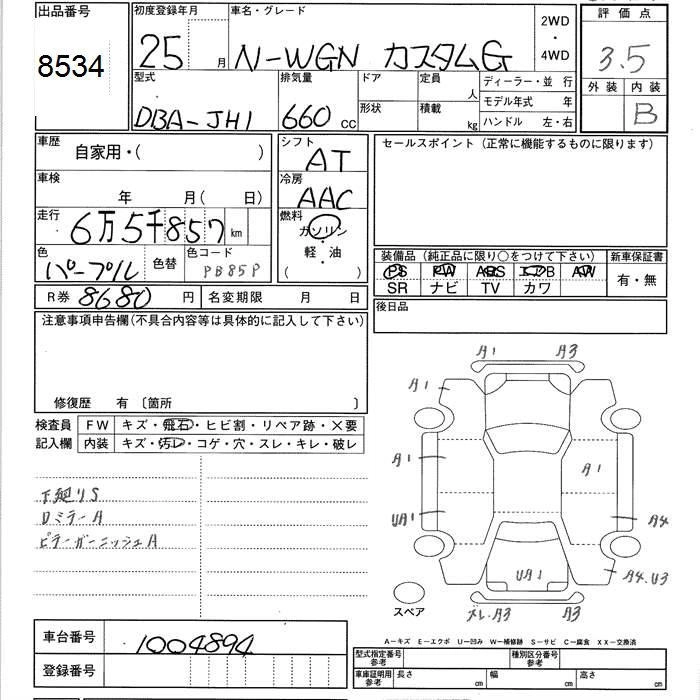 出品番号
8534
初度登録年月
25 月
車名・グレード
N-WGN カスタムG
2WD
・
4WD
評価点
3.5
外装 内装
B
型式
DBA-JH1
排気量
660 cc
ドア
形状
定員
人
積載
kg
ディーラー・並 行
モデル年式 年
ハンドル 左・右
車歴
自家用・( )
車検
年 月( 日)
走行
6万5千857 km
色
パープル
色替
色コード
PB85P
シフト
AT
冷房
AAC
燃料
ガソリン
・
軽・油
( )
セールスポイント (正常に機能するものに限ります)
装備品 (純正品に限り○をつけて下さい)
新車保証書
PS PW ABS エアB AW
SR ナビ TV カワ
有・無
R券 8680 円
名変期限 月 日
後日品
注意事項申告欄(不具合内容等は具体的に記入して下さい)
修復歴 有 〔箇所 〕
検査員
記入欄
FW キズ・飛石・ヒビ割・リペア跡・×要
内装 キズ・汚レ・コゲ・穴・スレ・キレ・破レ
下廻りS
ロミラーA
ピラーガーニッシュA
A1 A3
A1
A1 A1
UA1 A4
UA1 A4.U3
スペア
ズレ.A3 A3
A−キズ E−エクボ U−凹み W−補修跡 S−サビ C−腐食 XX−交換済
車台番号
1004894
登録番号
型式指定番号
参考
種別区分番号
参考
車庫証明用
参考
長さ cm
幅 cm
高さ cm